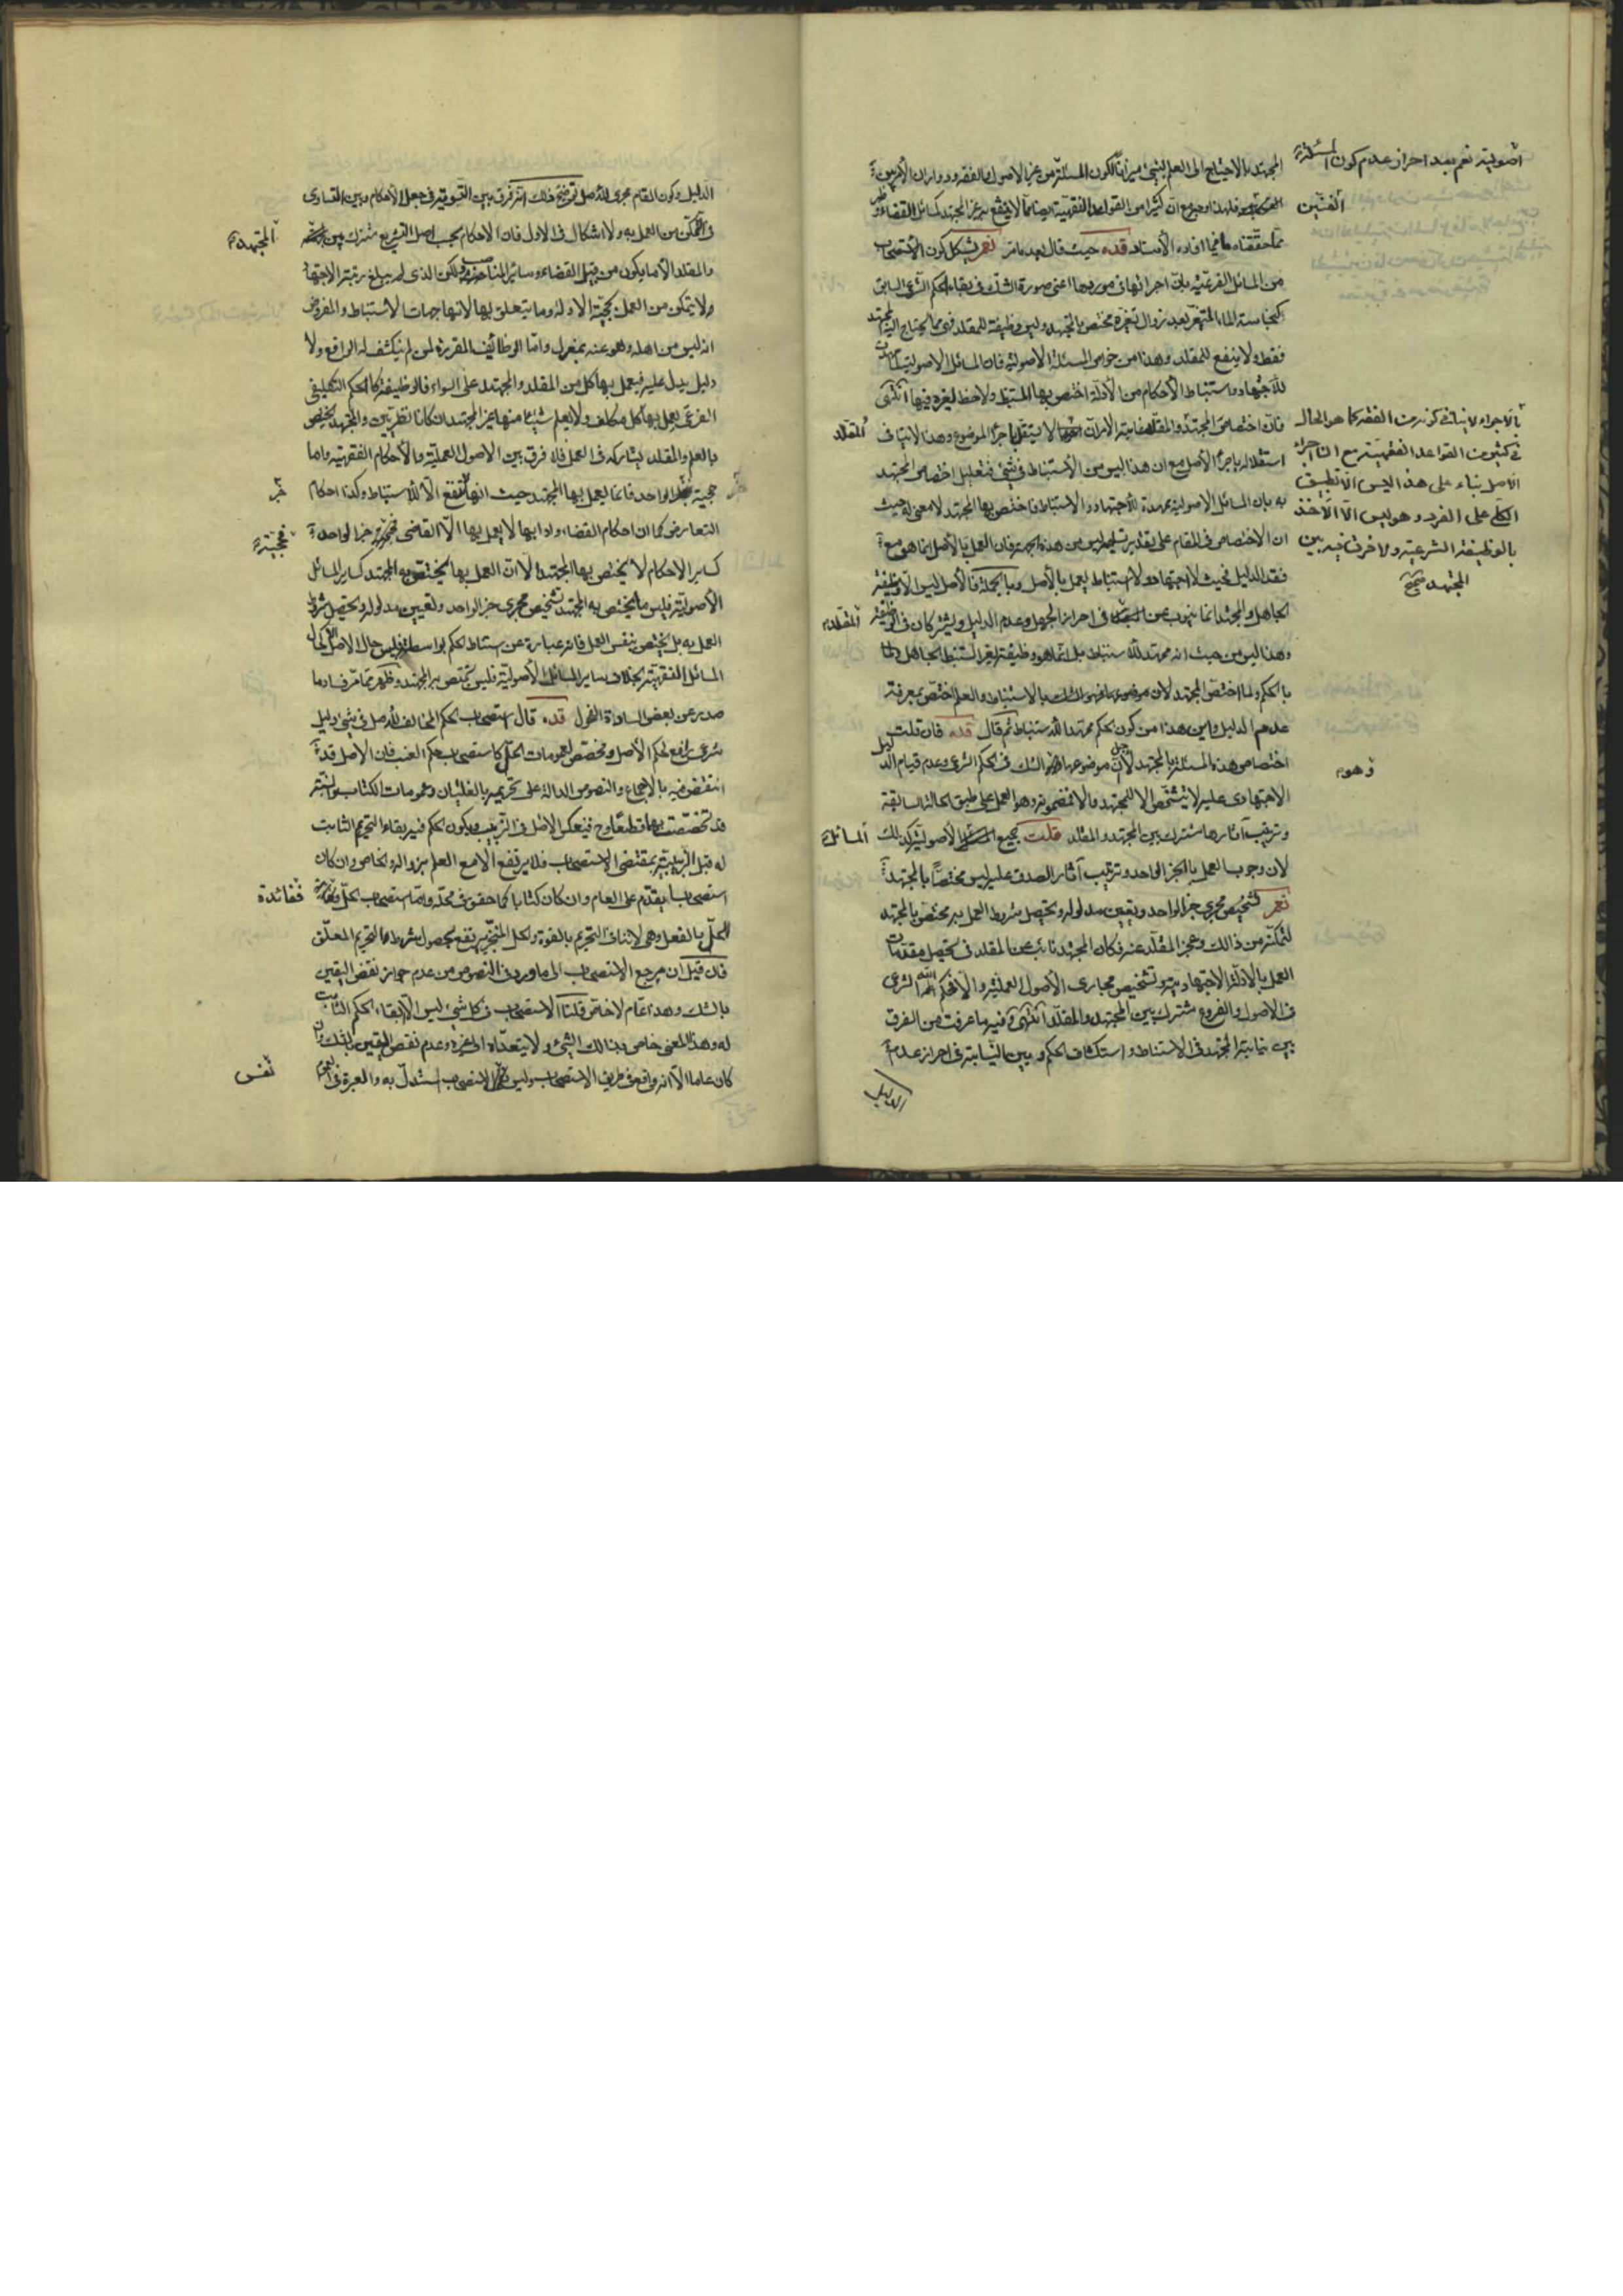 المجتهد بالاحتياج الى العلم بشيء ميزانا لكون المسئلة من غير الاصول والفقه ودوران الأمر بين
فلهذا اوجه مع ان كثيرا من القواعد الفقهية ايضا مما لا ينتفع به غير المجتهد كمسائل القضاء
مما حققناه ما فيما افاده الأستاد قده حيث قال بعد مامر نعم يشكل كون الاستصحاب
من المسائل الفرعية بان اجرائها في موردها اعنى صورة الشك في بقاء الحكم الشرعى السابق
كنجاسة الماء المتغير بعد زوال تغيره مختص بالمجتهد وليس وظيفة للمقلد فهى مما يحتاج اليه المجتهد
فقط ولا ينفع للمقلد وهذا من خواص المسئلة الاصولية فان المسائل الاصولية لما مهدت
للاجتهاد واستنباط الأحكام من الأدلة اختص بها المستنبط ولا حظ لغيره فيها انتهى
فان اختصاص المجتهد والمقلد غاية الامر ان لا يستقل باجراء الموضوع وهذا لا ينافى
استقلاله باجراء الأصل مع ان هذا ليس من الأستنباط في شيء فتعليل اختصاص المجتهد
به بان المسائل الاصولية ممهدة للأجتهاد والاستنباط فاختص بها المجتهد لا معنى له حيث
ان الاختصاص فى المقام على تقدير تسليمه ليس من هذه الجهة فان العمل بالأصل انما هو مع
فقد الدليل فحيث لا اجتهاد ولا استنباط يعمل بالأصل وبالجملة فالأصل ليس الا وظيفة
الجاهل والمجتهد انما ينوب عن في احراز الجهل وعدم الدليل ويشتركان في الوظيفة
وهذا ليس من حيث انه ممهد للاستنباط بل انما هو وظيفة لغير المستنبط الجاهل
بالحكم ولما اختص المجتهد لان موضوع بالاستنباط والعلم اختص بمعرفة
عدم الدليل واين هذا من كون الحكم ممهدا للاستنباط ثم قال قده فان قلت
اختصاص هذه المسئلة بالمجتهد لأجل ان موضوعها وهو الشك في الحكم الشرعى وعدم قيام الدليل
الاجتهادى عليه لا يتشخص الا للمجتهد والا فمضمونه وهو العمل على طبق الحالة السابقة
وترتيب آثارها مشترك بين المجتهد والمقلد قلت جميع المسائل الأصولية كذلك
لان وجوب العمل بالخبر الواحد وترتيب آثار الصدق عليه ليس مختصا بالمجتهد
نعم تشخيص مجرى خبر الواحد وتعيين مدلوله وتحصيل شروط العمل به مختص بالمجتهد
لتمكنه من ذالك وعجز المقلد عنه فكان المجتهد نائب عن المقلد في تحصيل مقدمات
العمل بالادلة الاجتهادية وتشخيص مجارى الأصول العملية والا فحكم الله الشرعى
فى الاصول والفروع مشترك بين المجتهد والمقلد انتهى وفيه ما عرفت من الفرق
بين نيابة المجتهد فى الاستنباط واستكشاف الحكم وبين النيابة فى احراز عدم
الدليل
اصولية نعم بعد احراز عدم كون المسئلة
الفنين
بالاجراء لا ينافى كونه من الفقه كما هو الحال
فى كثير من القواعد الفقهية مع ان اجراء
الاصل بناء على هذا ليس الا تطبيق
الكلى على الفرد وهو ليس الا الأخذ
بالوظيفة الشرعية ولا فرق فيه بين
المجتهد صح
المقلد
المقلد
وهو
المسائل
الدليل وكون المقام مجرى للأصل توضيح ذلك انه فرق بين التسوية في جعل الأحكام وبين التساوى
فى التمكن من العمل به ولا اشكال فى الاول فان الاحكام بحسب اصل التشريع مشترك بين
والمقلد الا ما يكون من قبيل القضاء وسائر المناصب ولكن الذى لم يبلغ مرتبة الاجتهاد
ولا يتمكن من العمل بحجية الادلة وما يتعلق بها لانها جهات الاستنباط والمفروض
انه ليس من اهله وهو عنه بمعزل واما الوظائف المقررة لمن لم ينكشف له الواقع ولا
دليل يدل عليه فيعمل بها كل من المقلد والمجتهد على السواء فالوظيفة كالحكم التكليفى
الفرعى يعمل بها كل مكلف ولا يعلم شيئا منها غير المجتهد ان كانا نظريين والمجتهد يختص
بالعلم والمقلد يشاركه فى العمل فلا فرق بين الاصول العملية والأحكام الفقهية واما
حجية خبر الواحد فانما يعمل بها المجتهد حيث انها لا تنفع الا للاستنباط وكذا احكام
التعارض كما ان احكام القضاء وادابها لا يعمل بها الا القاضى خبر الواحد
كساير الاحكام لا يختص بها المجتهد الا ان العمل بها يختص به المجتهد كساير المسائل
الأصولية فليس ما يختص به المجتهد تشخيص مجرى خبر الواحد وتعيين مدلوله وتحصيل شروط
العمل به بل يختص بنفس العمل فانه عبارة عن استنباط الحكم بواسطته وليس حال الاصل الا كحال
المسائل الفقهية بخلاف ساير المسائل الأصولية فليس يختص به المجتهد وظهر مما مر فساد ما
صدر عن بعض السادة الفحول قده قال استصحاب الحكم المخالف للأصل فى شىء دليل
شرعى رافع لحكم الأصل ومخصص لعمومات الحل كاستصحاب حكم العنب فان الاصل قد
انتقض فيه بالاجماع والنصوص الدالة على تحريمه بالغليان وعمومات الكتاب والسنة
قد تخصصت بهما قطعا وح فينعكس الاصل فى الزبيب ويكون الحكم فيه بقاء التحريم الثابت
له قبل الزبيبية بمقتضى الاستصحاب فلا يرتفع الا مع العلم بزواله والخاص وان كان
استصحابا يقدم على العام وان كان كتابا كما حقق فى محله واما استصحاب الحل
الحل بالفعل وهى لا ينافى التحريم بالقوة والحل المنجز يرتفع بحصول شرط التحريم المعلق
فان قيل ان مرجع الاستصحاب الى ما ورد فى النصوص من عدم جواز نقض اليقين
بالشك وهذا عام لا خاص قلنا الاستصحاب فى كل شىء ليس الا بقاء الحكم الثابت
له وهذا المعنى خاص بذالك الشىء ولا يتعداه الى غيره وعدم نقض اليقين بالشك وان
كان عاما الا انه واقع فى طريق الاستصحاب وليس نفس الاستصحاب المستدل به والعبرة فى
المجتهد
خبر
فحجية
ففائدة
نفس